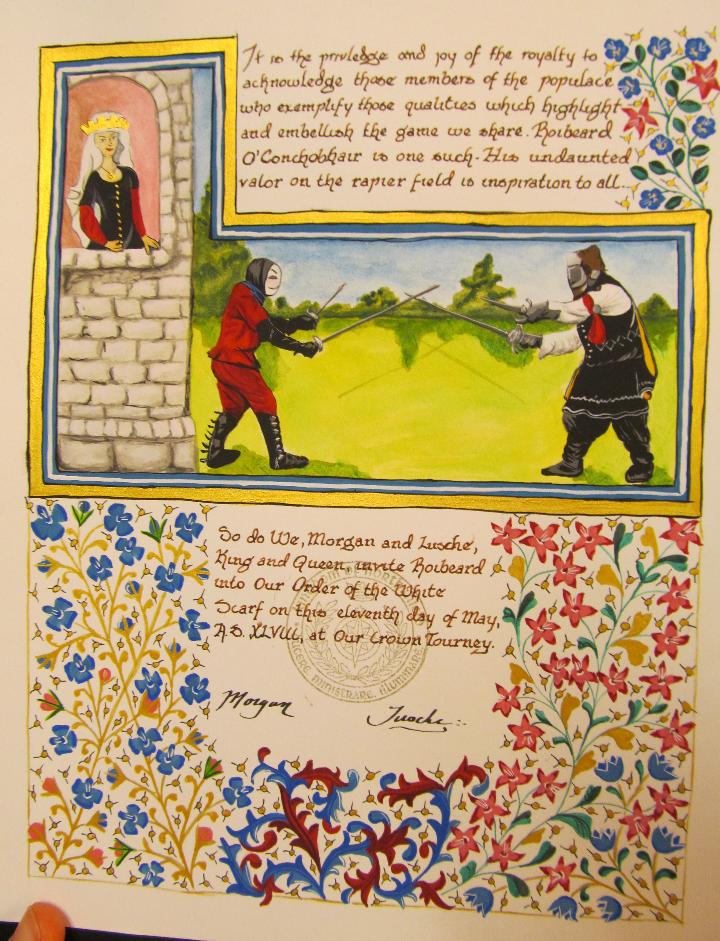 It is the privledge and joy of the royalty to
acknowledge those members of the populace
who exemplify those qualities which highlight
and embellish the game we share. Roibeard
O'Conchobhair is one such. His undaunted
valor on the rapier field is inspiration to all.
So do We, Morgan and Lusche,
King and Queen, invite Roibeard
into Our Order of the White
Scarf on this eleventh day of May,
A.S. XLVIII, at Our Crown Tourney.
Morgan Lusche
MINISTRARE, ILLUMINARE